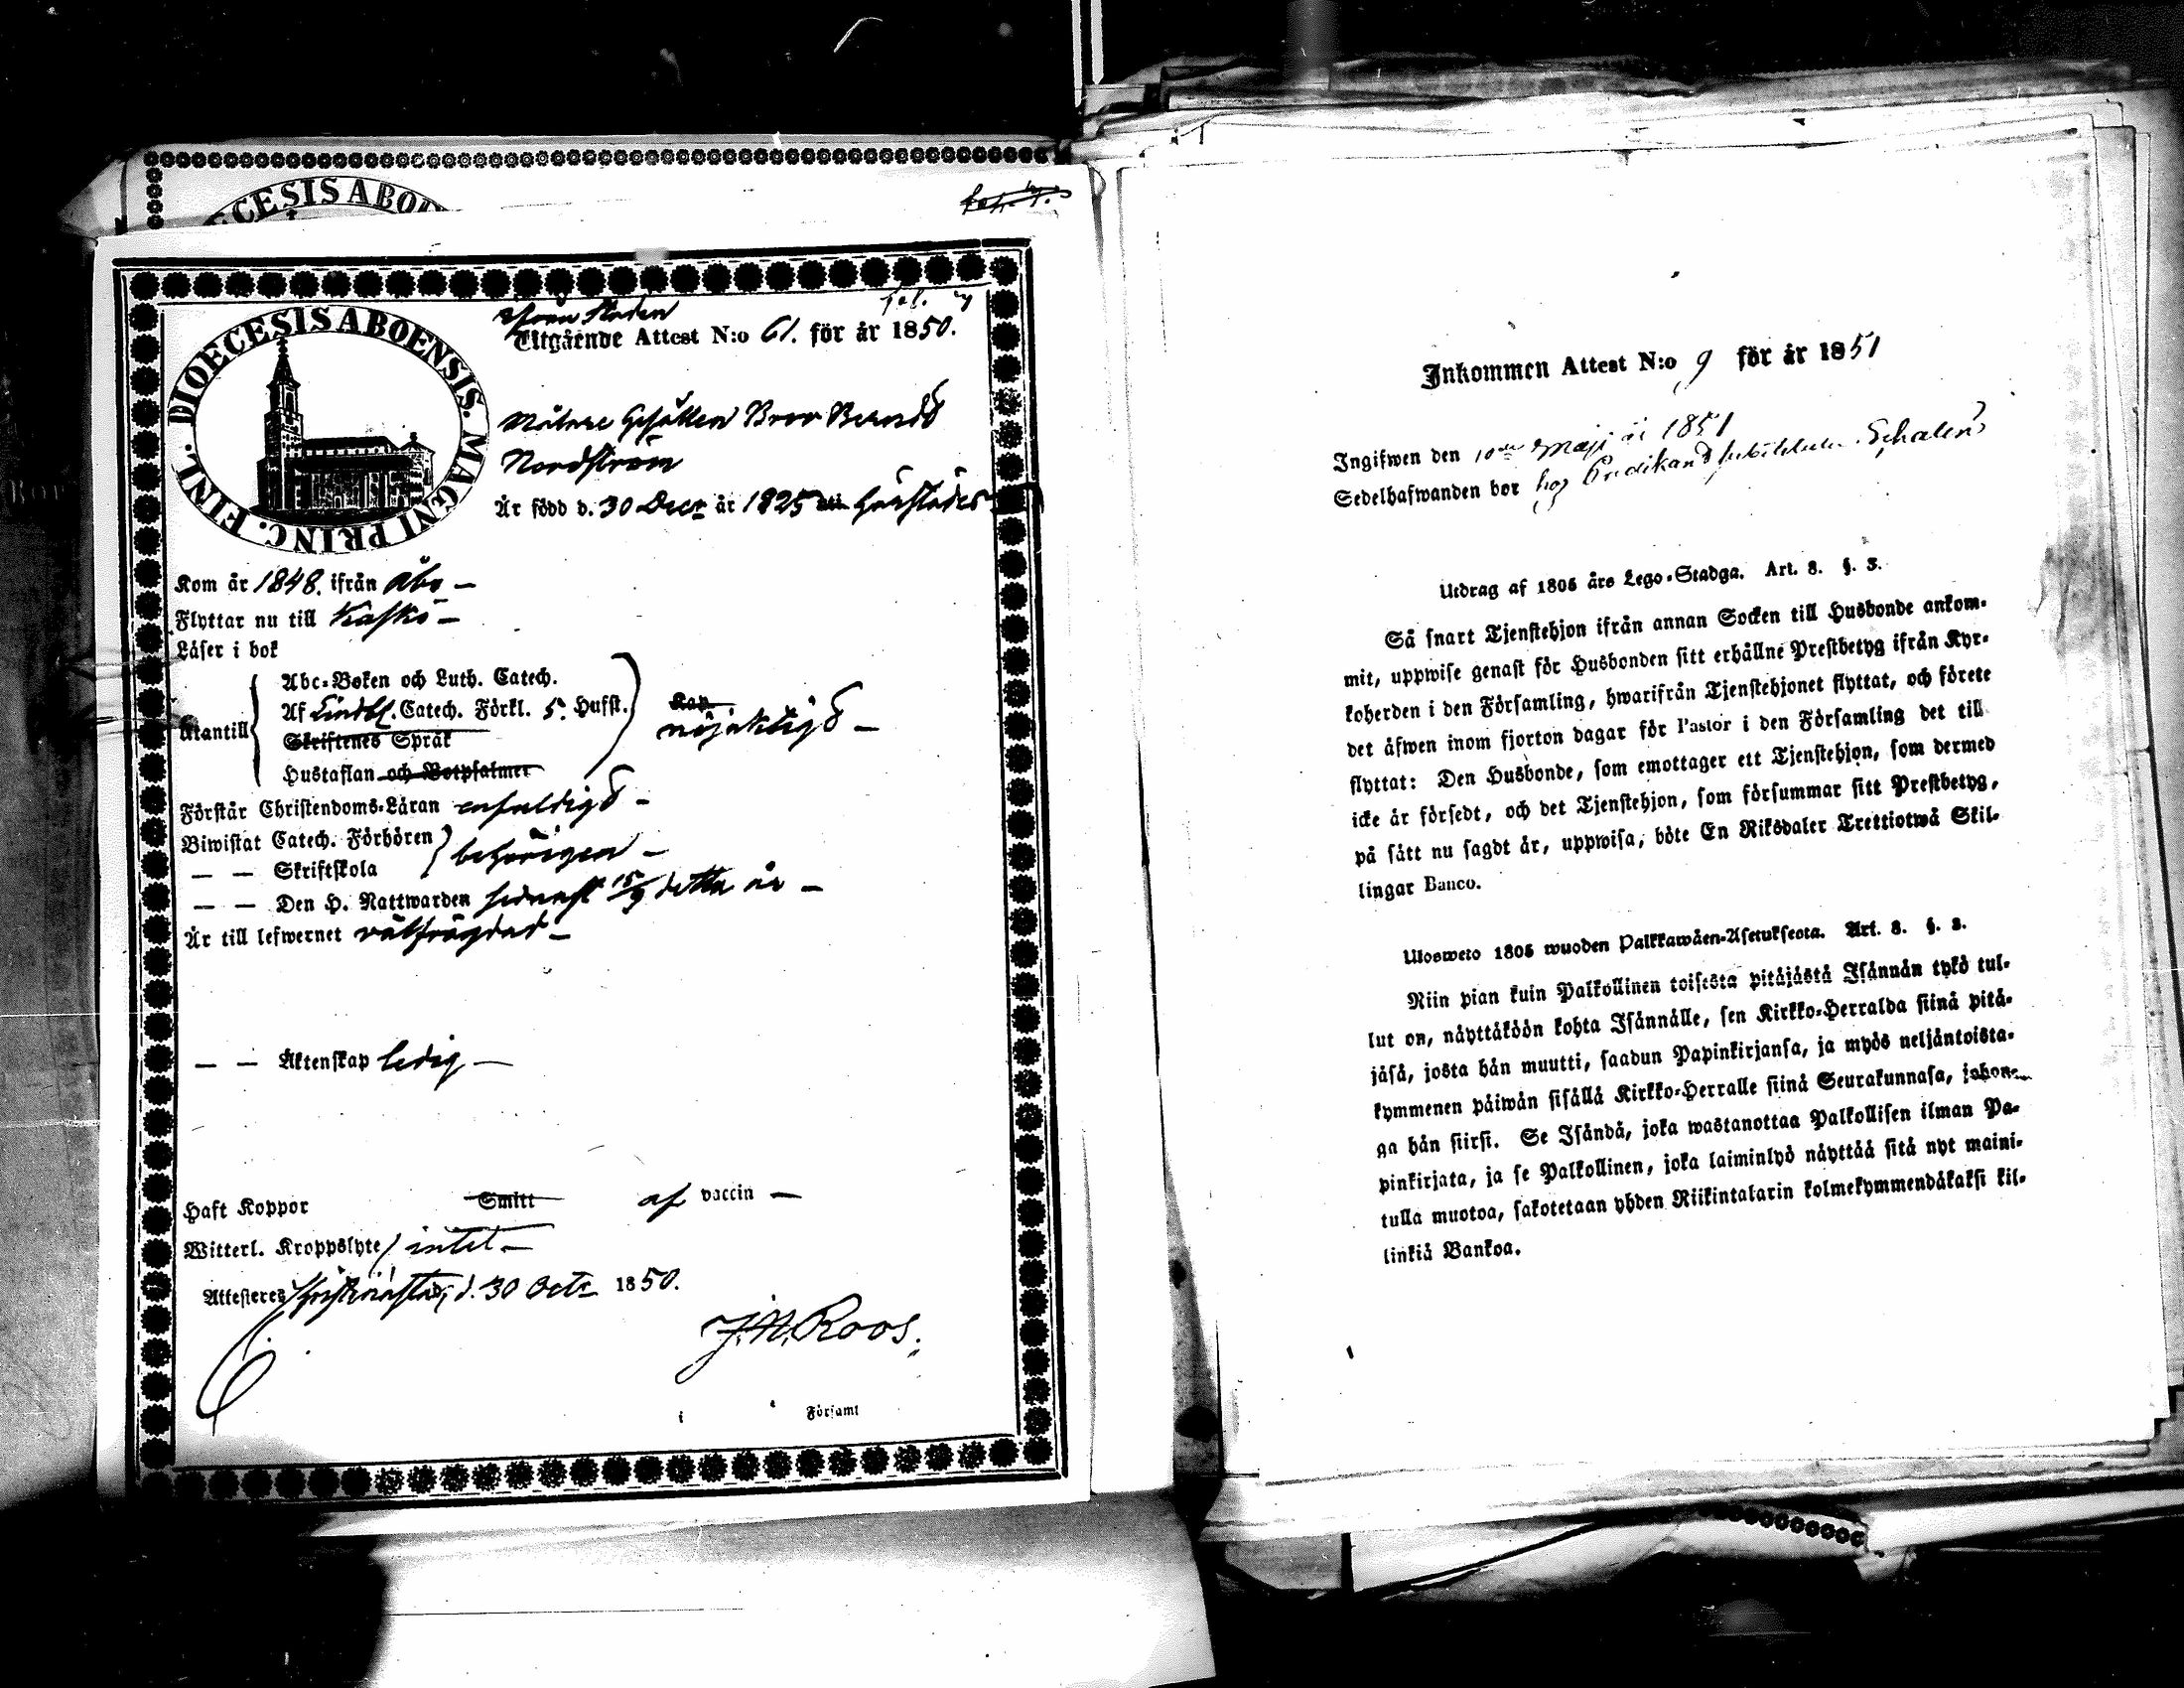 ECESIS ABOE
DIOECESIS ABOENSIS. MAGNI PRINC. FINL.
från staden
Utgående Attest N:o 61. för år 1850.
Målare Gesällen Bror Bernd
Nordström
Är född d. 30 Decr år 1825
Kom år 1848. ifrån Åbo —
Flyttar nu till Kaskö —
Läser i bok
Abc-Boken och Luth. Catech.
Utantill Af Lindbl. Catech. Förkl. 5. Hufst. Kap.
Skriftenes Språk nöjaktigt —
Hustaflan och Botpsalmer
Förstår Christendoms-Läran enfaldigt —
Biwistat Catech. Förhören
— — Skriftskola behörigen —
— — Den H. Nattwarden sednast 15/9 detta år —
Är till lefwernet välfrägdad —
— — Äktenskap ledig —
Haft Koppor Smitt af vaccin —
Witterl. Kroppslyte intet —
Attesteres Christinestad, d. 30 Octr 1850.
J. N. Roos.
i Församl
Inkommen Attest N:o 9 för år 1851
Ingifwen den 10de Maji år 1851
Sedelhafwanden bor hos Predikand substituten Schalén
Utdrag af 1805 års Lego-Stadga. Art. 8. §. 3.
Så snart Tjenstehjon ifrån annan Socken till Husbonde ankom-
mit, uppwise genast för Husbonden sitt erhållne Prestbetyg ifrån Kyr-
koherden i den Församling, hwarifrån Tjenstehjonet flyttat, och förete
det äfwen inom fjorton dagar för Pastor i den Församling det till
flyttat: Den Husbonde, som emottager ett Tjenstehjon, som dermed
icke är försedt, och det Tjenstehjon, som försummar sitt Prestbetyg,
på sätt nu sagdt är, uppwisa, böte En Riksdaler Trettiotwå Skil-
lingar Banco.
Ulosweto 1805 wuoden Palkkawäen-Asetuksesta. Art. 8. §. 3.
Niin pian kuin Palkollinen toisesta pitäjästä Isännän tykö tul-
lut on, näyttäköön kohta Isännälle, sen Kirkko-Herralda siinä pitä-
jäsä, josta hän muutti, saadun Papinkirjansa, ja myös neljäntoista-
kymmenen päiwän sisällä Kirkko-Herralle siinä Seurakunnasa, johon-
ga hän siirsi. Se Isändä, joka wastanottaa Palkollisen ilman Pa-
pinkirjata, ja se Palkollinen, joka laiminlyö näyttää sitä nyt maini-
tulla muotoa, sakotetaan yhden Riikintalarin kolmekymmendäkaksi kil-
linkiä Bankoa.